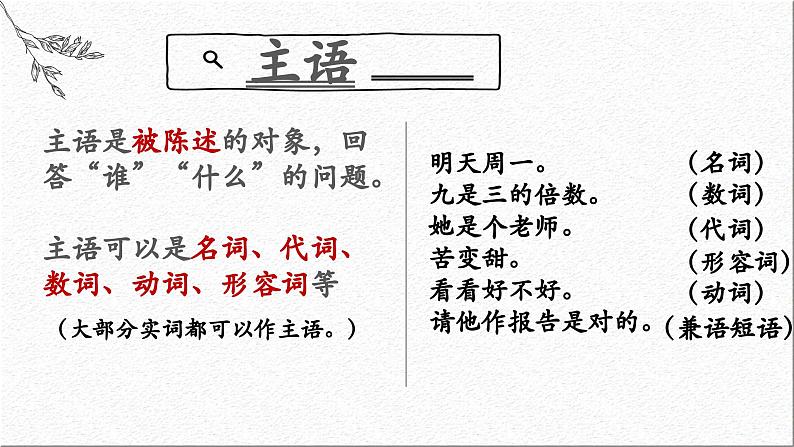 主语
主语是被陈述的对象，回
答“谁”“什么”的问题。
主语可以是名词、代词、
数词、动词、形容词等
（大部分实词都可以作主语。）
明天周一。（名词）
九是三的倍数。（数词）
她是个老师。（代词）
苦变甜。（形容词）
看看好不好。（动词）
请他作报告是对的。（兼语短语）